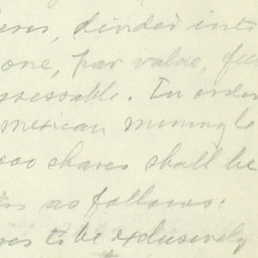 divided into
one, par value, ful
ssessable. In order
mexican mining le
000 shares shall be
as follows:
to be exclusively